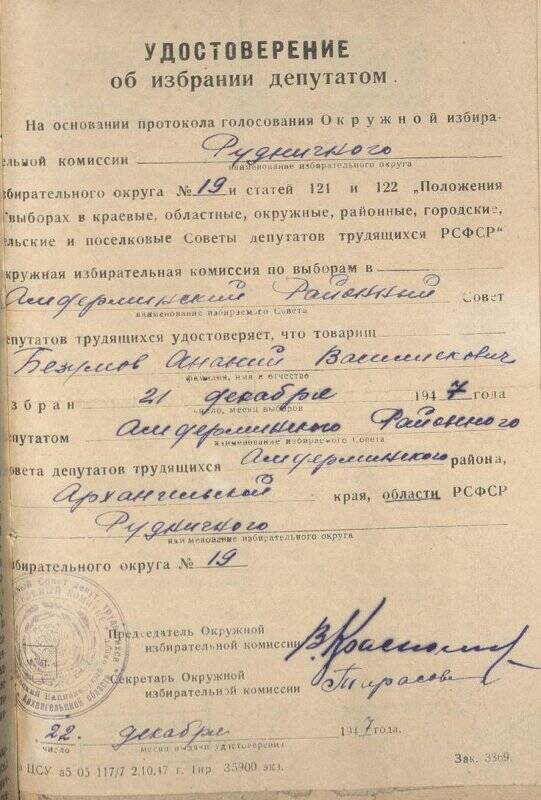 УДОСТОВЕРЕНИЕ
об избрании депутатом.
На основании протокола голосования Окружной избира-
ельной комиссии Рудничного
наименование избирательного округа
збирательного округа № 19 и статей 121 и 122 „Положения
выборах в краевые, областные, окружные, районные, городские,
ельские и поселковые Советы депутатов трудящихся РСФСР"
кружная избирательная комиссия по выборам в
Амдерминский Районный Совет
наименование избираемого Совета
депутатов трудящихся удостоверяет, что товарищ
Безумов Ананий Василискович
фамилия, имя и отчество
збран 21 декабря 1947 года
число, месяц выборов
депутатом Амдерминского Районного
наименование избираемого Совета
овета депутатов трудящихся Амдерминского района,
Архангельской края, области РСФСР
Рудничного
наименование избирательного округа
збирательного округа № 19
Председатель Окружной
избирательной комиссии
Секретарь Окружной
избирательной комиссии Тарасова
22 декабря 1947 года.
число месяц выдачи удостоверения
ЦСУ а5 05 117/7 2.10.47 г. Тир. 35900 экз. Зак. 3369.